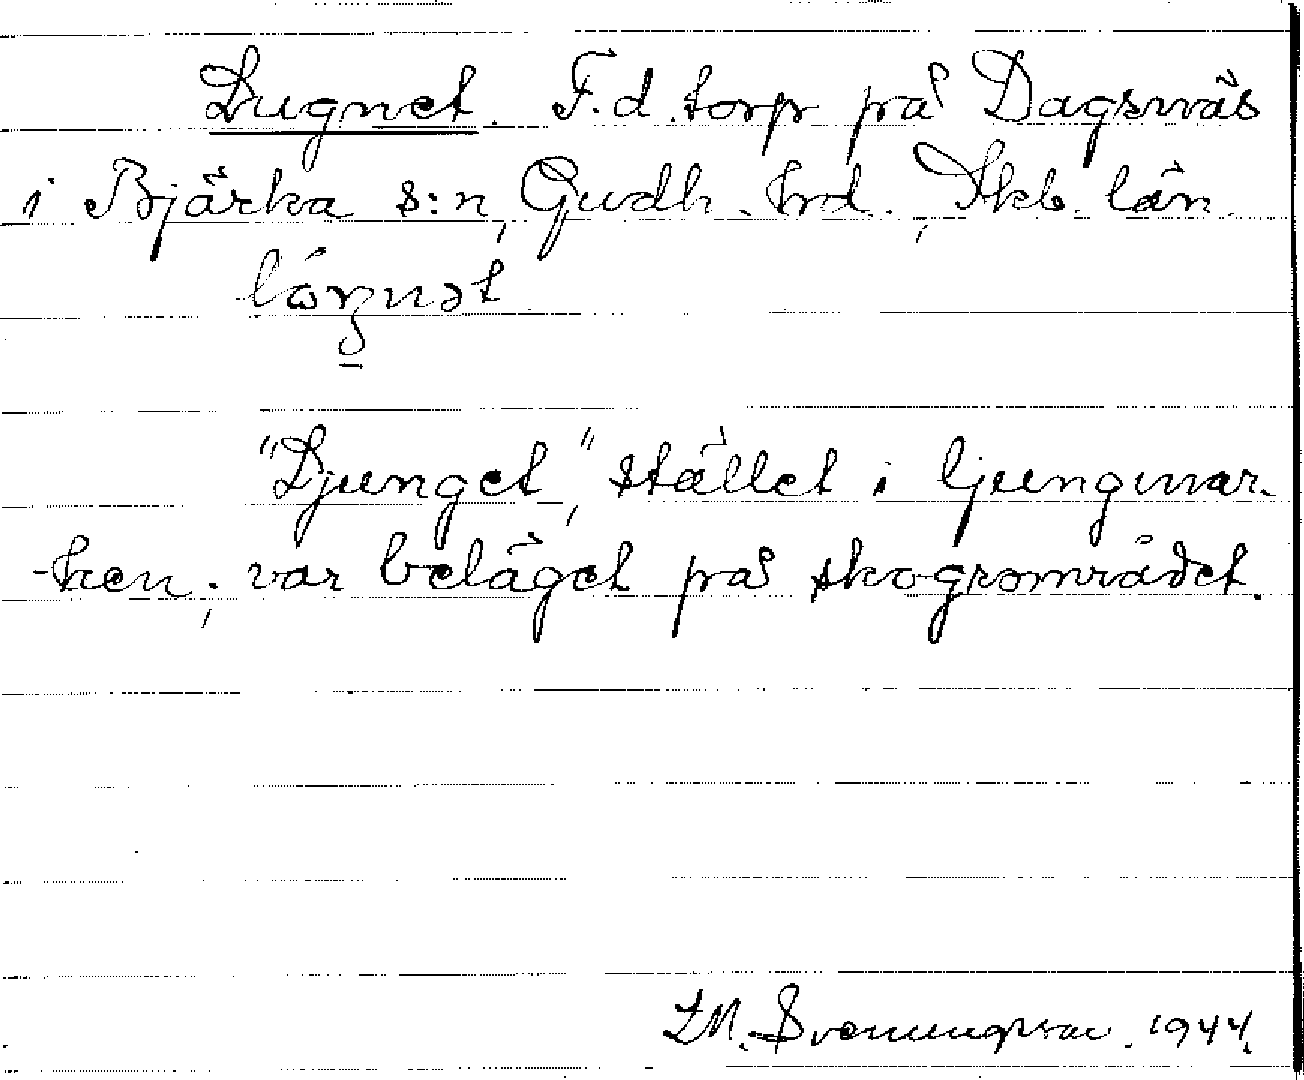 Lugnet. F.d. torp på Dagsnäs
i Bjärka s:n, Gudh. hrd., Skb. län.
"Ljunget", stället i ljungmar-
-ken; var beläget på skogsområdet.
Svenungsson. 1944.